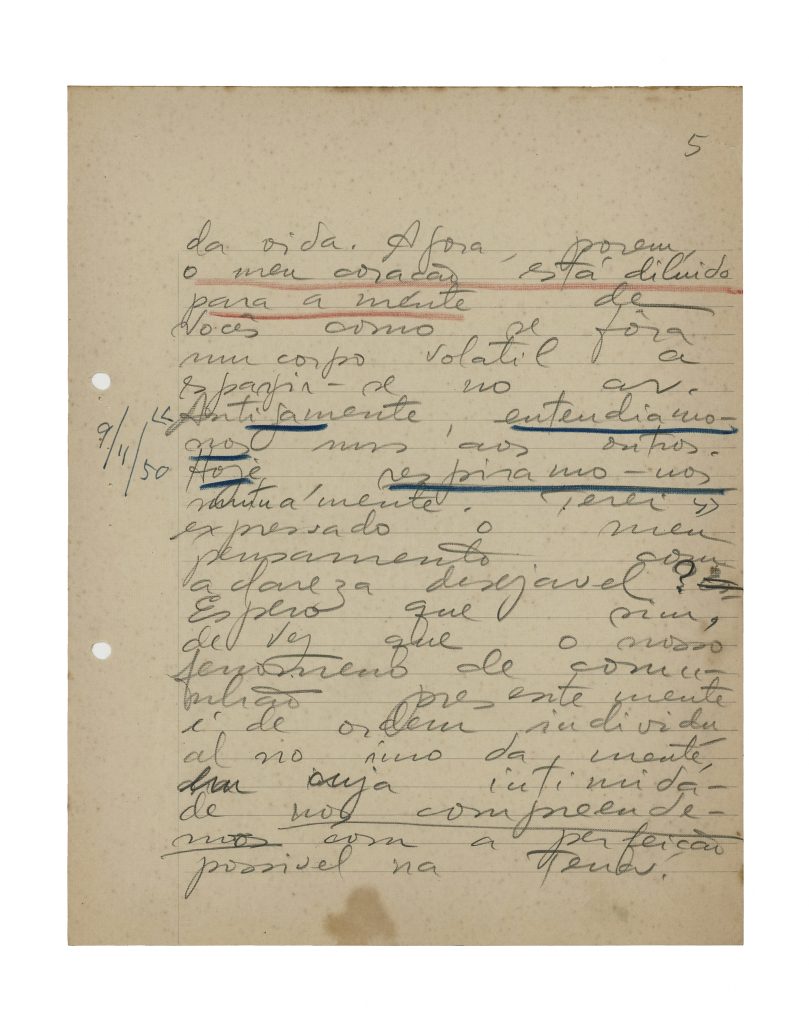 5
da vida. Agora, porem,
o meu coração está diluido
para a mente de
Vocês como se fôra
um corpo volatil a
espargir-se no ar.
« Antigamente, entendiamo-
nos uns aos outros.
Hoje, respiramo-nos
mutua'mente. Terei »
9/4/50
expressado o meu
pensamento com
a clareza desejavel?
Espero que sim,
de vez que o nosso
fenomeno de comu-
nhão presentemente
é de ordem individu
al no imo da mente,
em cuja intimida-
de nos compreende-
mos com a perfeição
possivel na Terra.